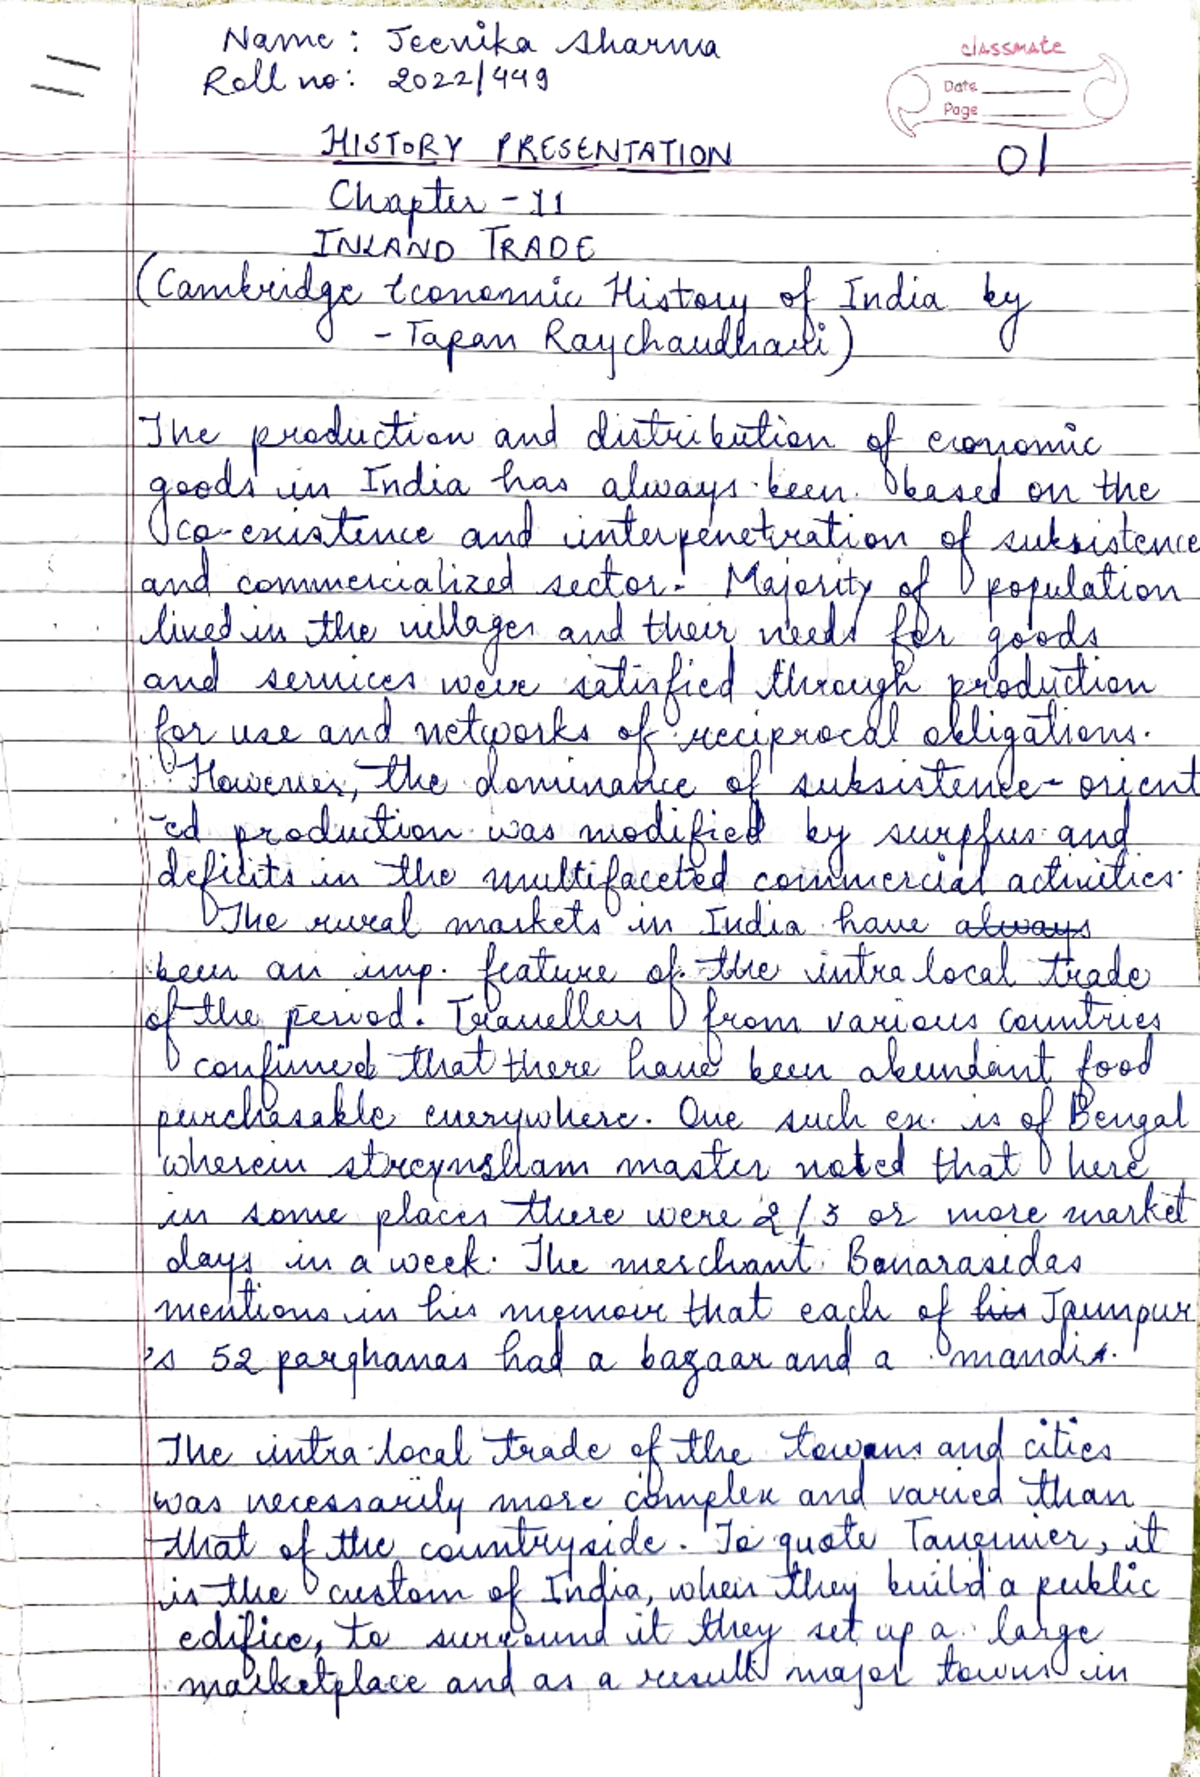 Name: Jeenika Sharma
Roll no: 2022/449
classmate
Date
Page
01
HISTORY PRESENTATION
Chapter - 11
INLAND TRADE
(Cambridge Economic History of India by
- Tapan Raychaudhari)
The production and distribution of economic
goods in India has always been based on the
co-existence and interpenetration of subsistence
and commercialized sector. Majority of population
lived in the villages and their needs for goods
and services were satisfied through production
for use and networks of reciprocal obligations.
However, the dominance of subsistence-orient
-ed production was modified by surplus and
deficits in the multifaceted commercial activities.
The rural markets in India have always
been an imp. feature of the intra local trade
of the period. Travellers from various countries
confirmed that there have been abundant food
purchasable everywhere. One such ex. is of Bengal
wherein streynsham master noted that here
in some places there were 2/3 or more market
days in a week. The merchant Banarasidas
mentions in his memoir that each of his Jaunpur
's 52 parghanas had a bazaar and a mandi.
The intra-local trade of the towns and cities
was necessarily more complex and varied than
that of the countryside. To quote Tavernier, it
is the custom of India, when they build a public
edifice, to surround it they set up a large
marketplace and as a result major towns in